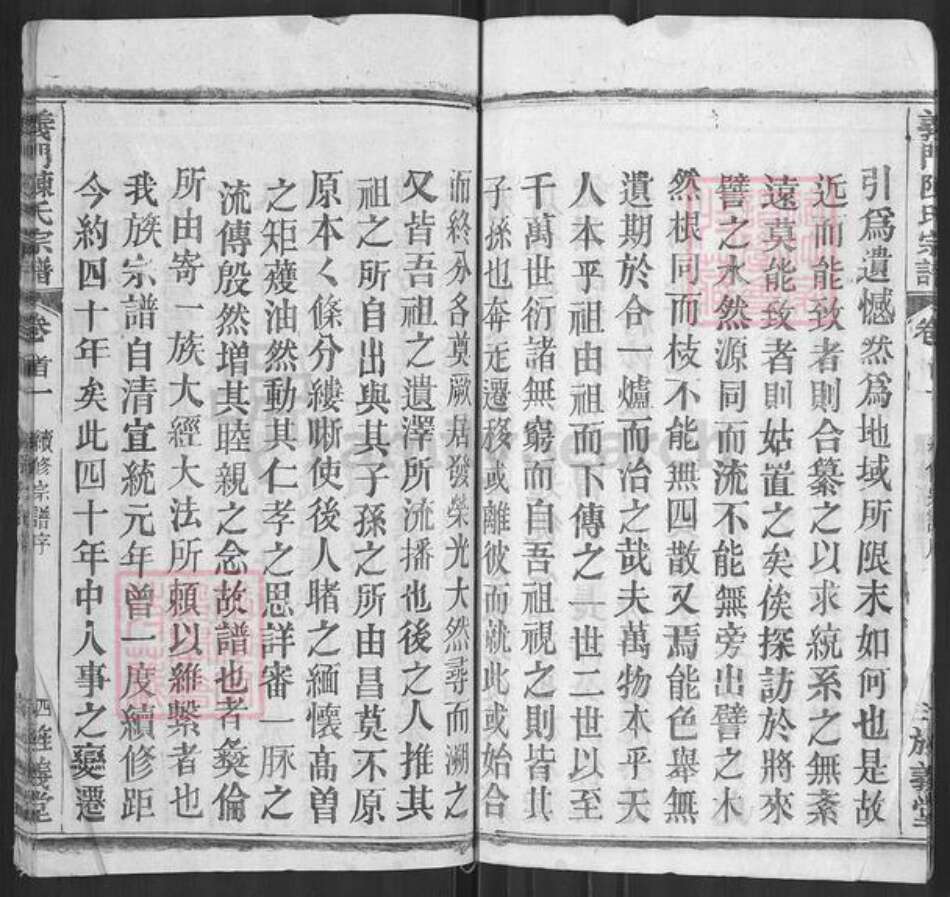 義門陳氏宗譜
卷首一
三
旌義堂
引爲遺憾然爲地域所限末如何也是故
近而能致者則合纂之以求統系之無紊
遠莫能致者則姑置之矣俟探訪於將來
譬之水然源同而流不能無旁出譬之木
然根同而枝不能無四散又焉能色舉無
遺期於合一爐而冶之哉夫萬物本乎天
人本乎祖由祖而下傳之一世二世以至
千萬世衍諸無窮而自吾祖視之則皆其
子孫也奔走遷移或離彼而就此或始合
而終分各奠厥居發榮光大然尋而溯之
又皆吾祖之遺澤所流播也後之人推其
祖之所自出與其子孫之所由昌莫不原
原本〱條分縷晰使後人睹之緬懷高曾
之矩蒦油然動其仁孝之思詳審一脉之
流傳殷然增其睦親之念故譜也者彜倫
所由寄一族大經大法所賴以維繫者也
我族宗譜自清宣統元年曾一度續修距
今約四十年矣此四十年中人事之變遷
義門陳氏宗譜
卷首一
續修宗譜序
四
旌義堂